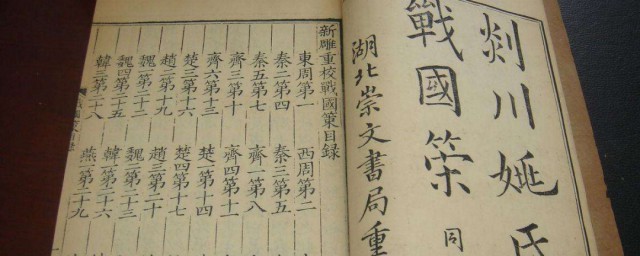 剡川姚氏
戰國策
同
湖北崇文書局重
新雕重校戰國策目録
東周第一 西周第二
秦二第四 秦三第五
秦五第七 齊一第八
齊三第十 齊四第十一
齊六第十三 楚一第十四
楚三第十六 楚四第十七
趙二第十九 趙三第二十
魏一第二十二 魏二第二十三
魏四第二十五 韓一第二十六
韓三第二十八 燕一第二十九